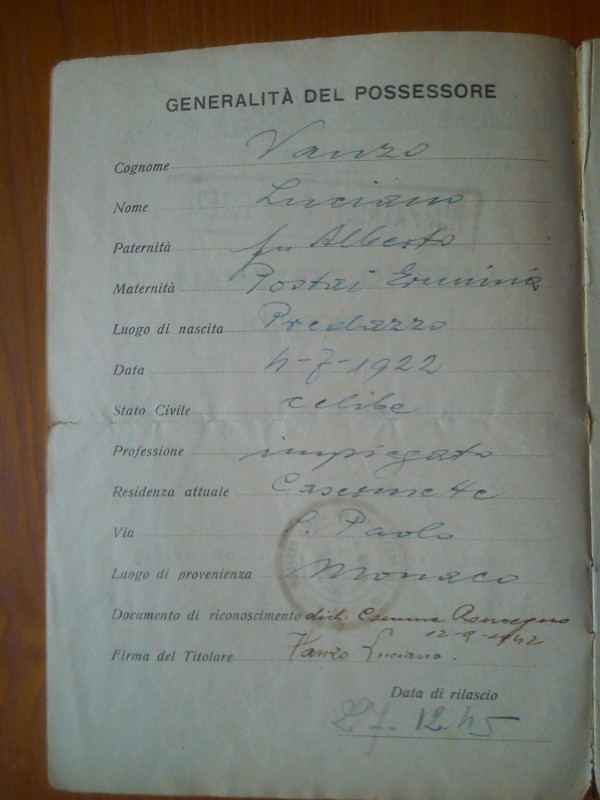 GENERALITÀ DEL POSSESSORE
Cognome Vanzo
Nome Luciano
Paternità fu Alberto
Maternità Postai Erminia
Luogo di nascita Predazzo
Data 4-7-1922
Stato Civile celibe
Professione impiegato
Residenza attuale Casermette
Via S. Paolo
Luogo di provenienza Monaco
Documento di riconoscimento dich.
12-9-1942
Firma del Titolare Vanzo Luciano.
Data di rilascio
27.12.45